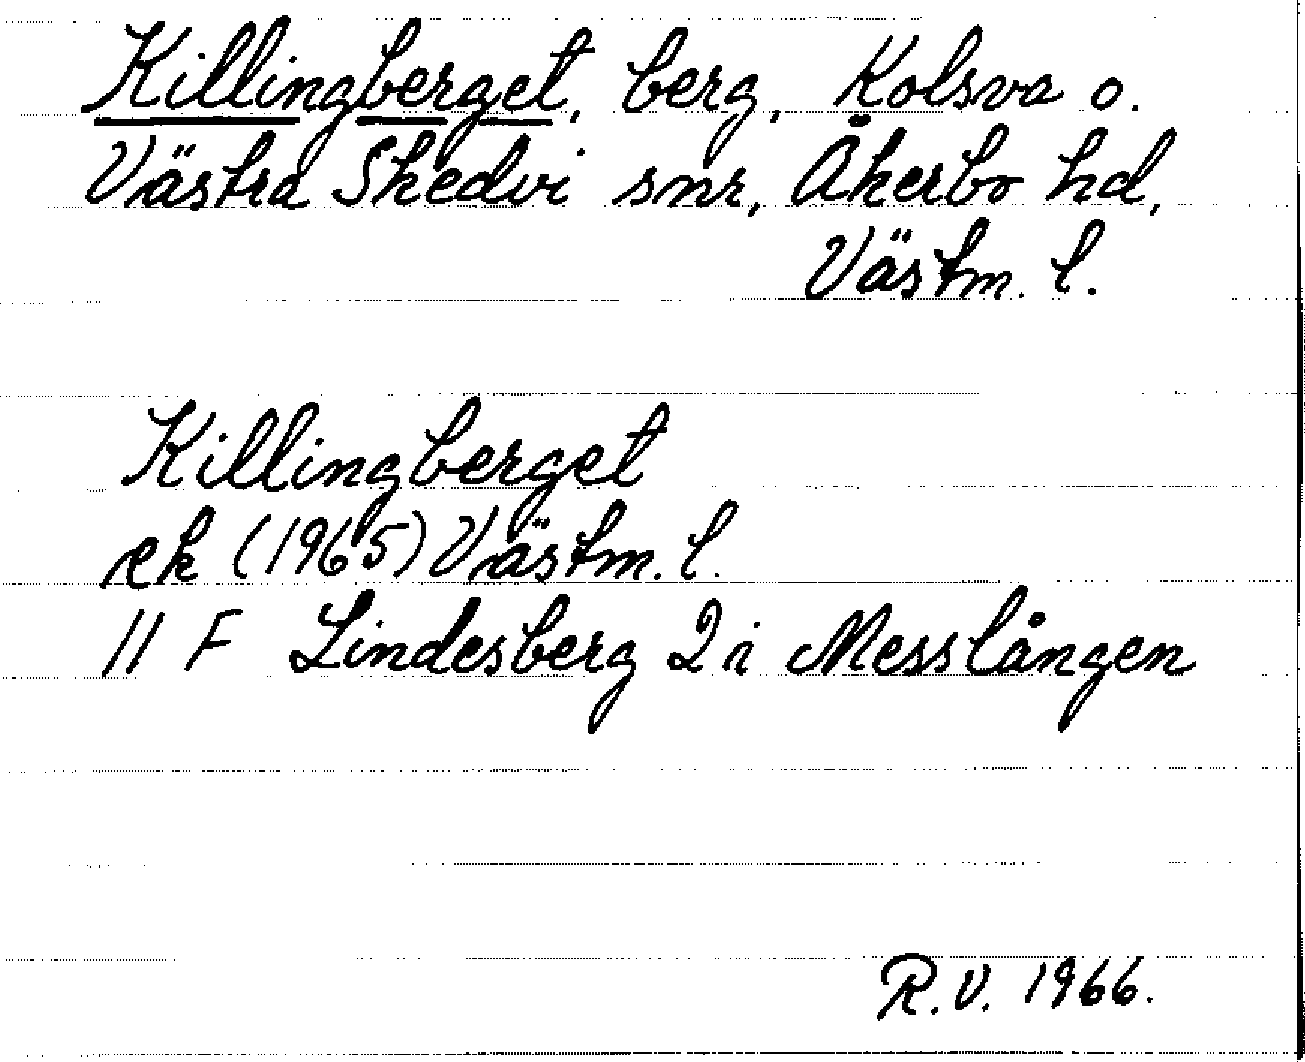 Killingberget, berg, Kolsva o.
Västra Skedvi snr, Åkerbo hd,
Västm. l.
Killingberget
ek (1965) Västm. l.
11 F Lindesberg 2 i Messlången
R.V. 1966.